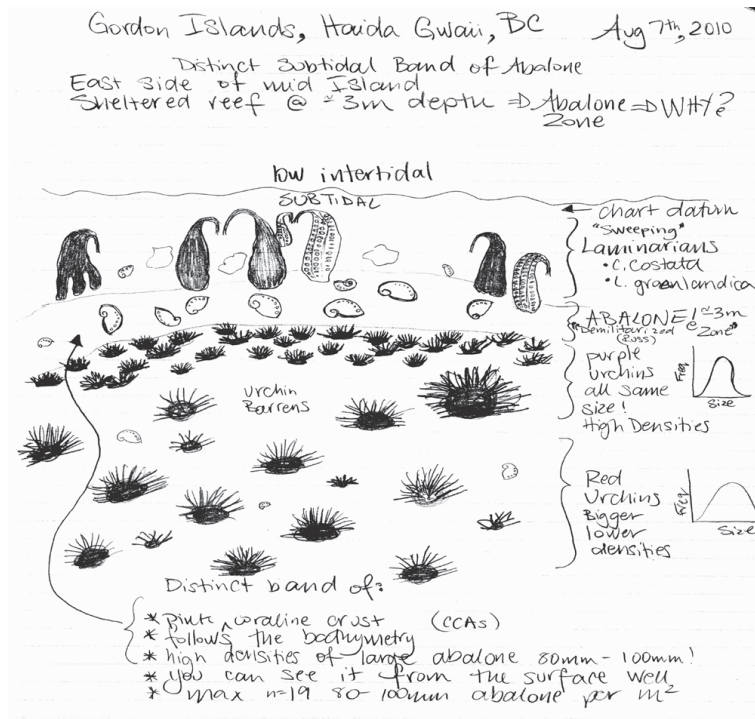 Gordon Islands, Haida Gwaii, BC Aug 7th, 2010
Distinct Subtidal Band of Abalone
East side of mid Island
Sheltered reef @ ≃3m depth ⇒ Abalone Zone ⇒ WHY?
low intertidal
SUBTIDAL
← chart datum
"Sweeping"
Laminarians
• C. Costata
• L. groenlandica
ABALONE! @ ≃3m
"Demilitarized Zone"
(Russ)
purple
urchins
all same
size!
High Densities
Freq.
Size
urchin
Barrens
Red
Urchins
Bigger
lower
densities
Freq.
Size
Distinct band of:
* pink coraline crust (CCAs)
* follows the bathymetry
* high densities of large abalone 80mm - 100mm!
* you can see it from the surface well
* max n=19 80-100mm abalone per m²